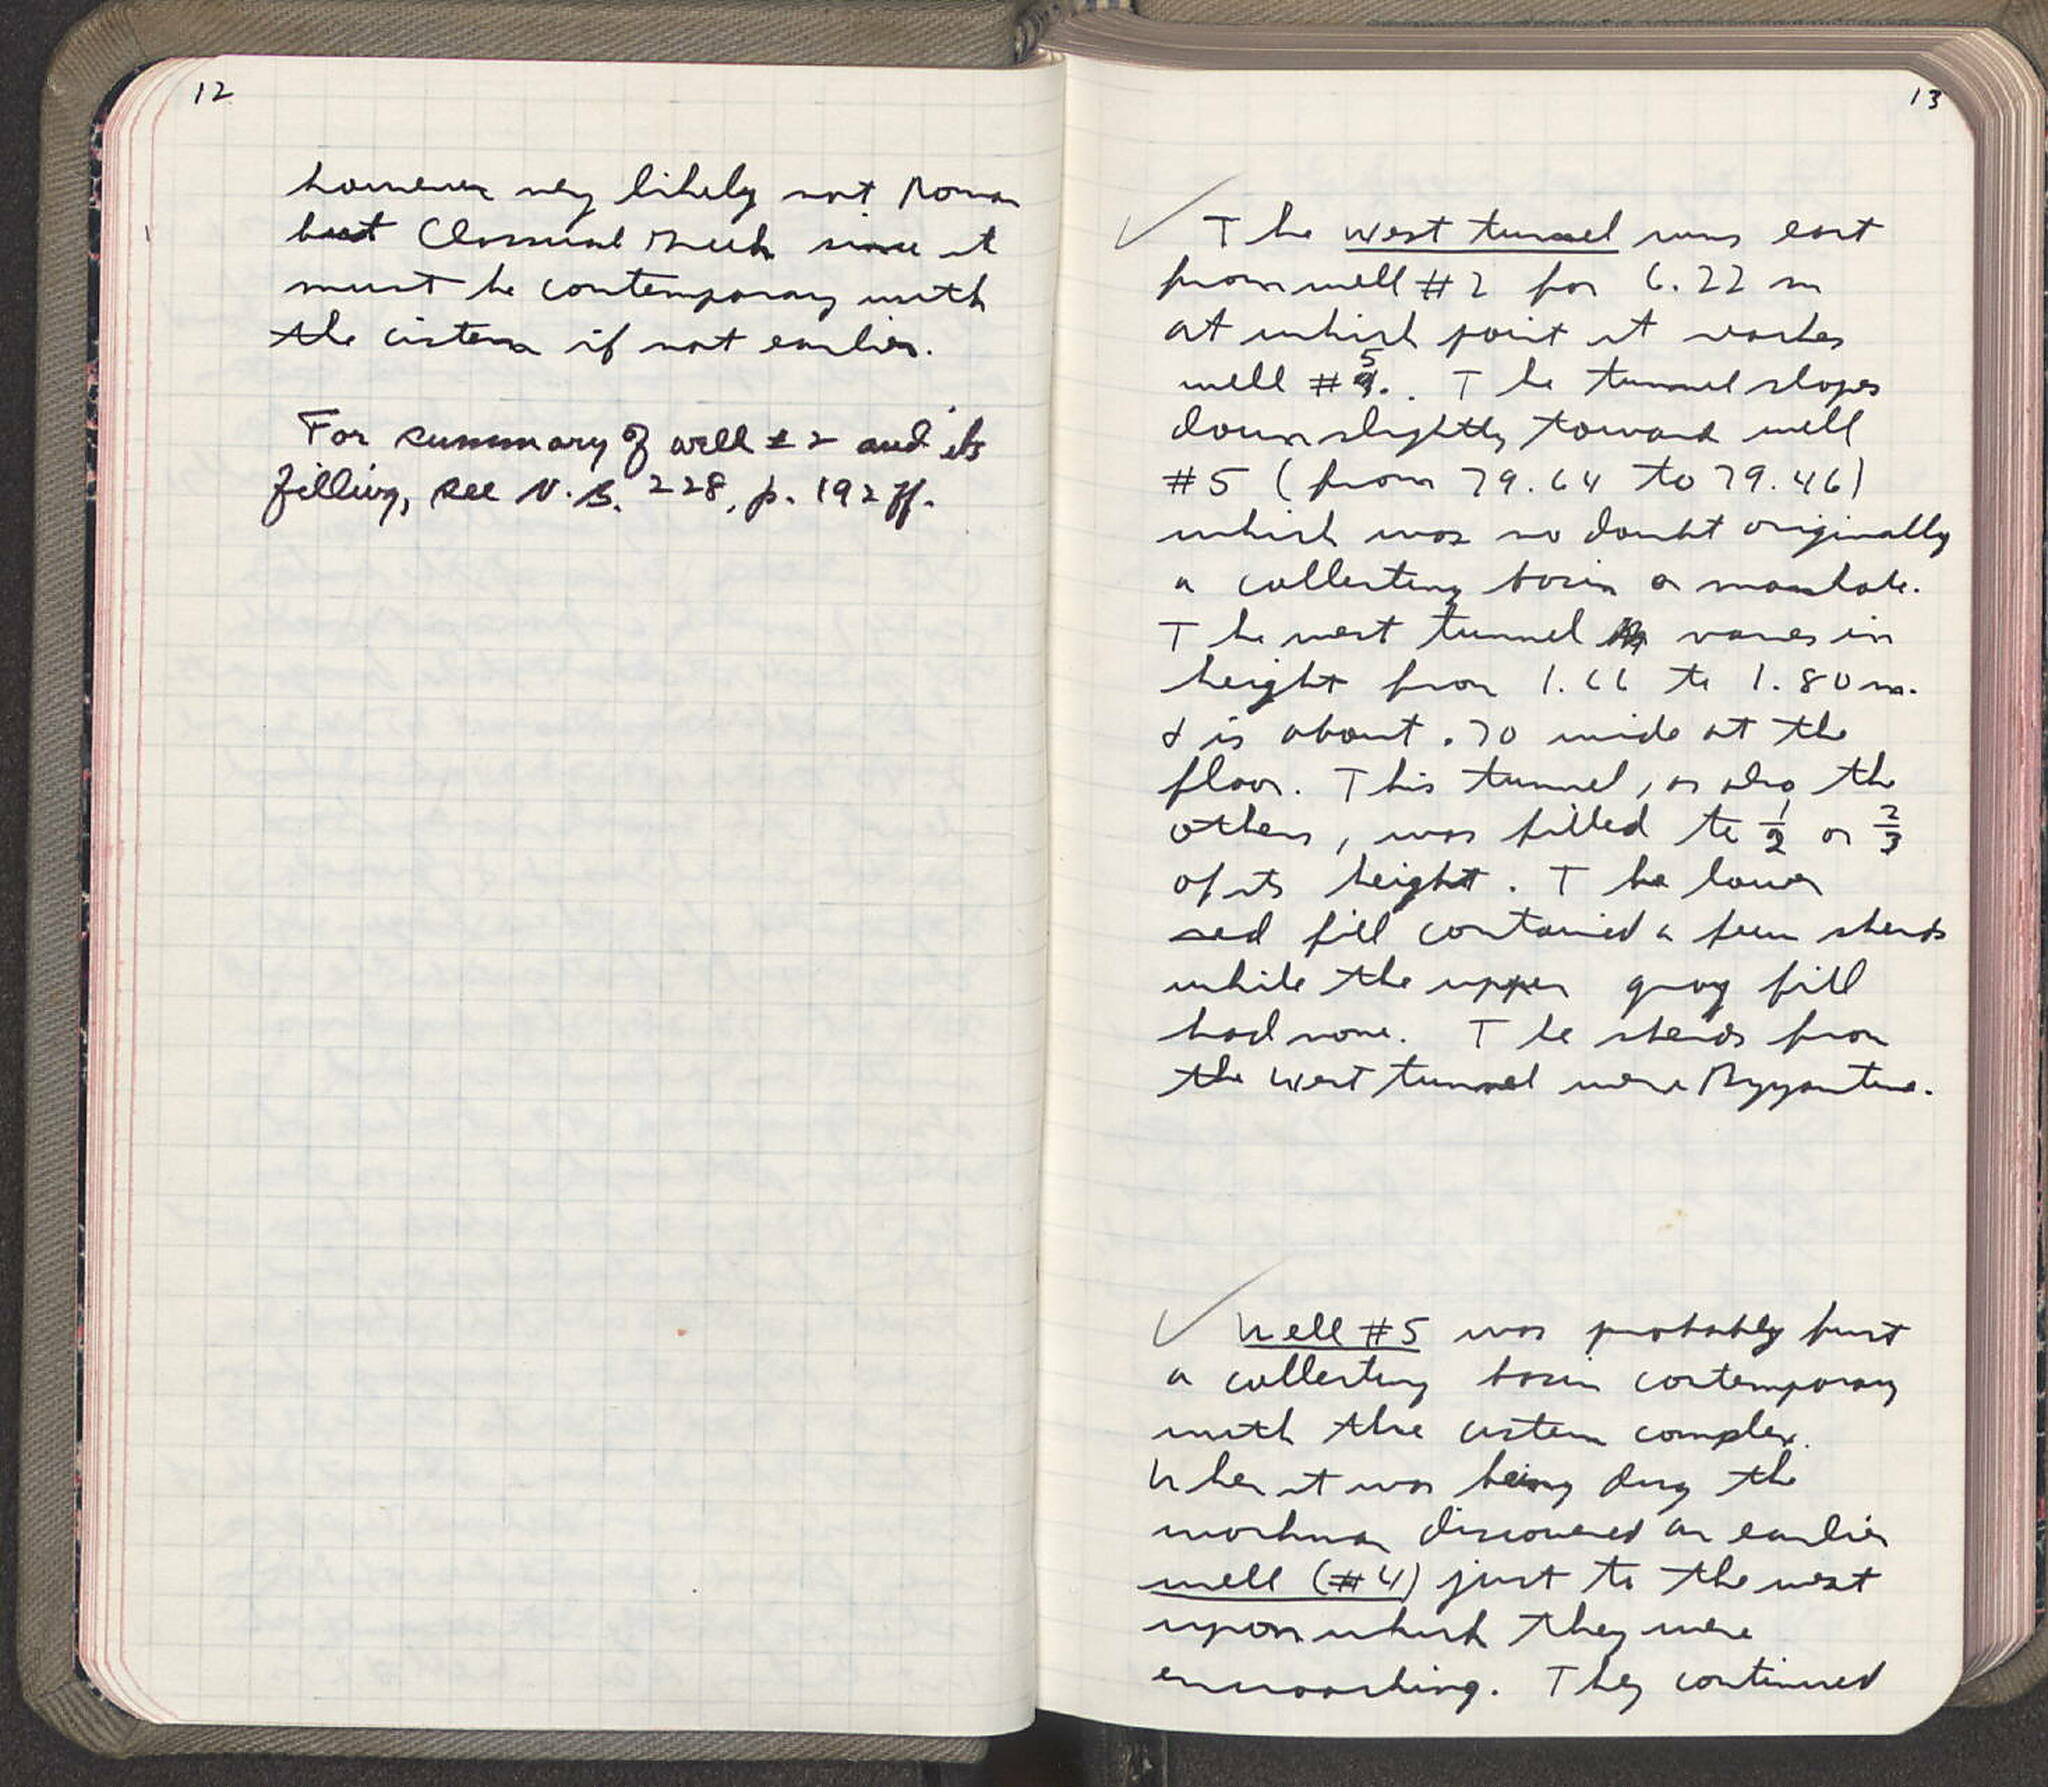 12
however very likely not Roman
but Classical Greek since it
must be contemporary with
the cistern if not earlier.
For summary of well #2 and its
filling, see N.B. 228, p. 192 ff.
13
The west tunnel runs east
from well #2 for 6.22 m
at which point it reaches
well #5. The tunnel slopes
down slightly toward well
#5 (from 79.64 to 79.46)
which was no doubt originally
a collecting basin or manhole.
The west tunnel varies in
height from 1.66 to 1.80 m.
& is about .70 wide at the
floor. This tunnel, as also the
others, was filled to 1/2 or 2/3
of its height. The lower
red fill contained a few sherds
while the upper gray fill
had none. The sherds from
the west tunnel were Byzantine.
Well #5 was probably first
a collecting basin contemporary
with the cistern complex.
When it was being dug the
workman discovered an earlier
well (#4) just to the west
upon which they were
encroaching. They continued